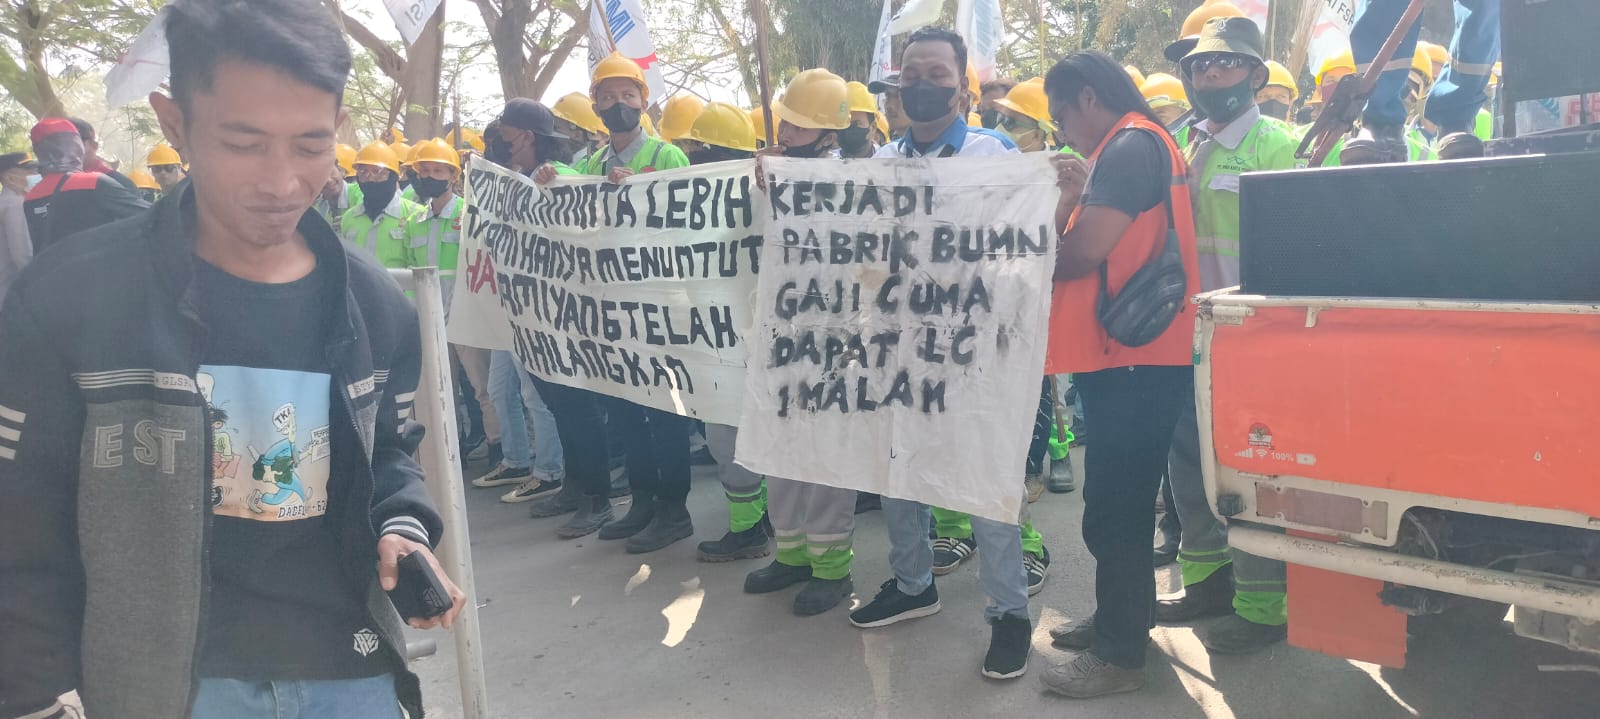 KAMI BUKAN MINTA LEBIH
KAMI HANYA MENUNTUT
HAK KAMI YANG TELAH
DIHILANGKAN
KERJA DI
PABRIK BUMN
GAJI CUMA
DAPAT LC
1 MALAM
EST
GLS
STY
TKA
DAGEL
100%